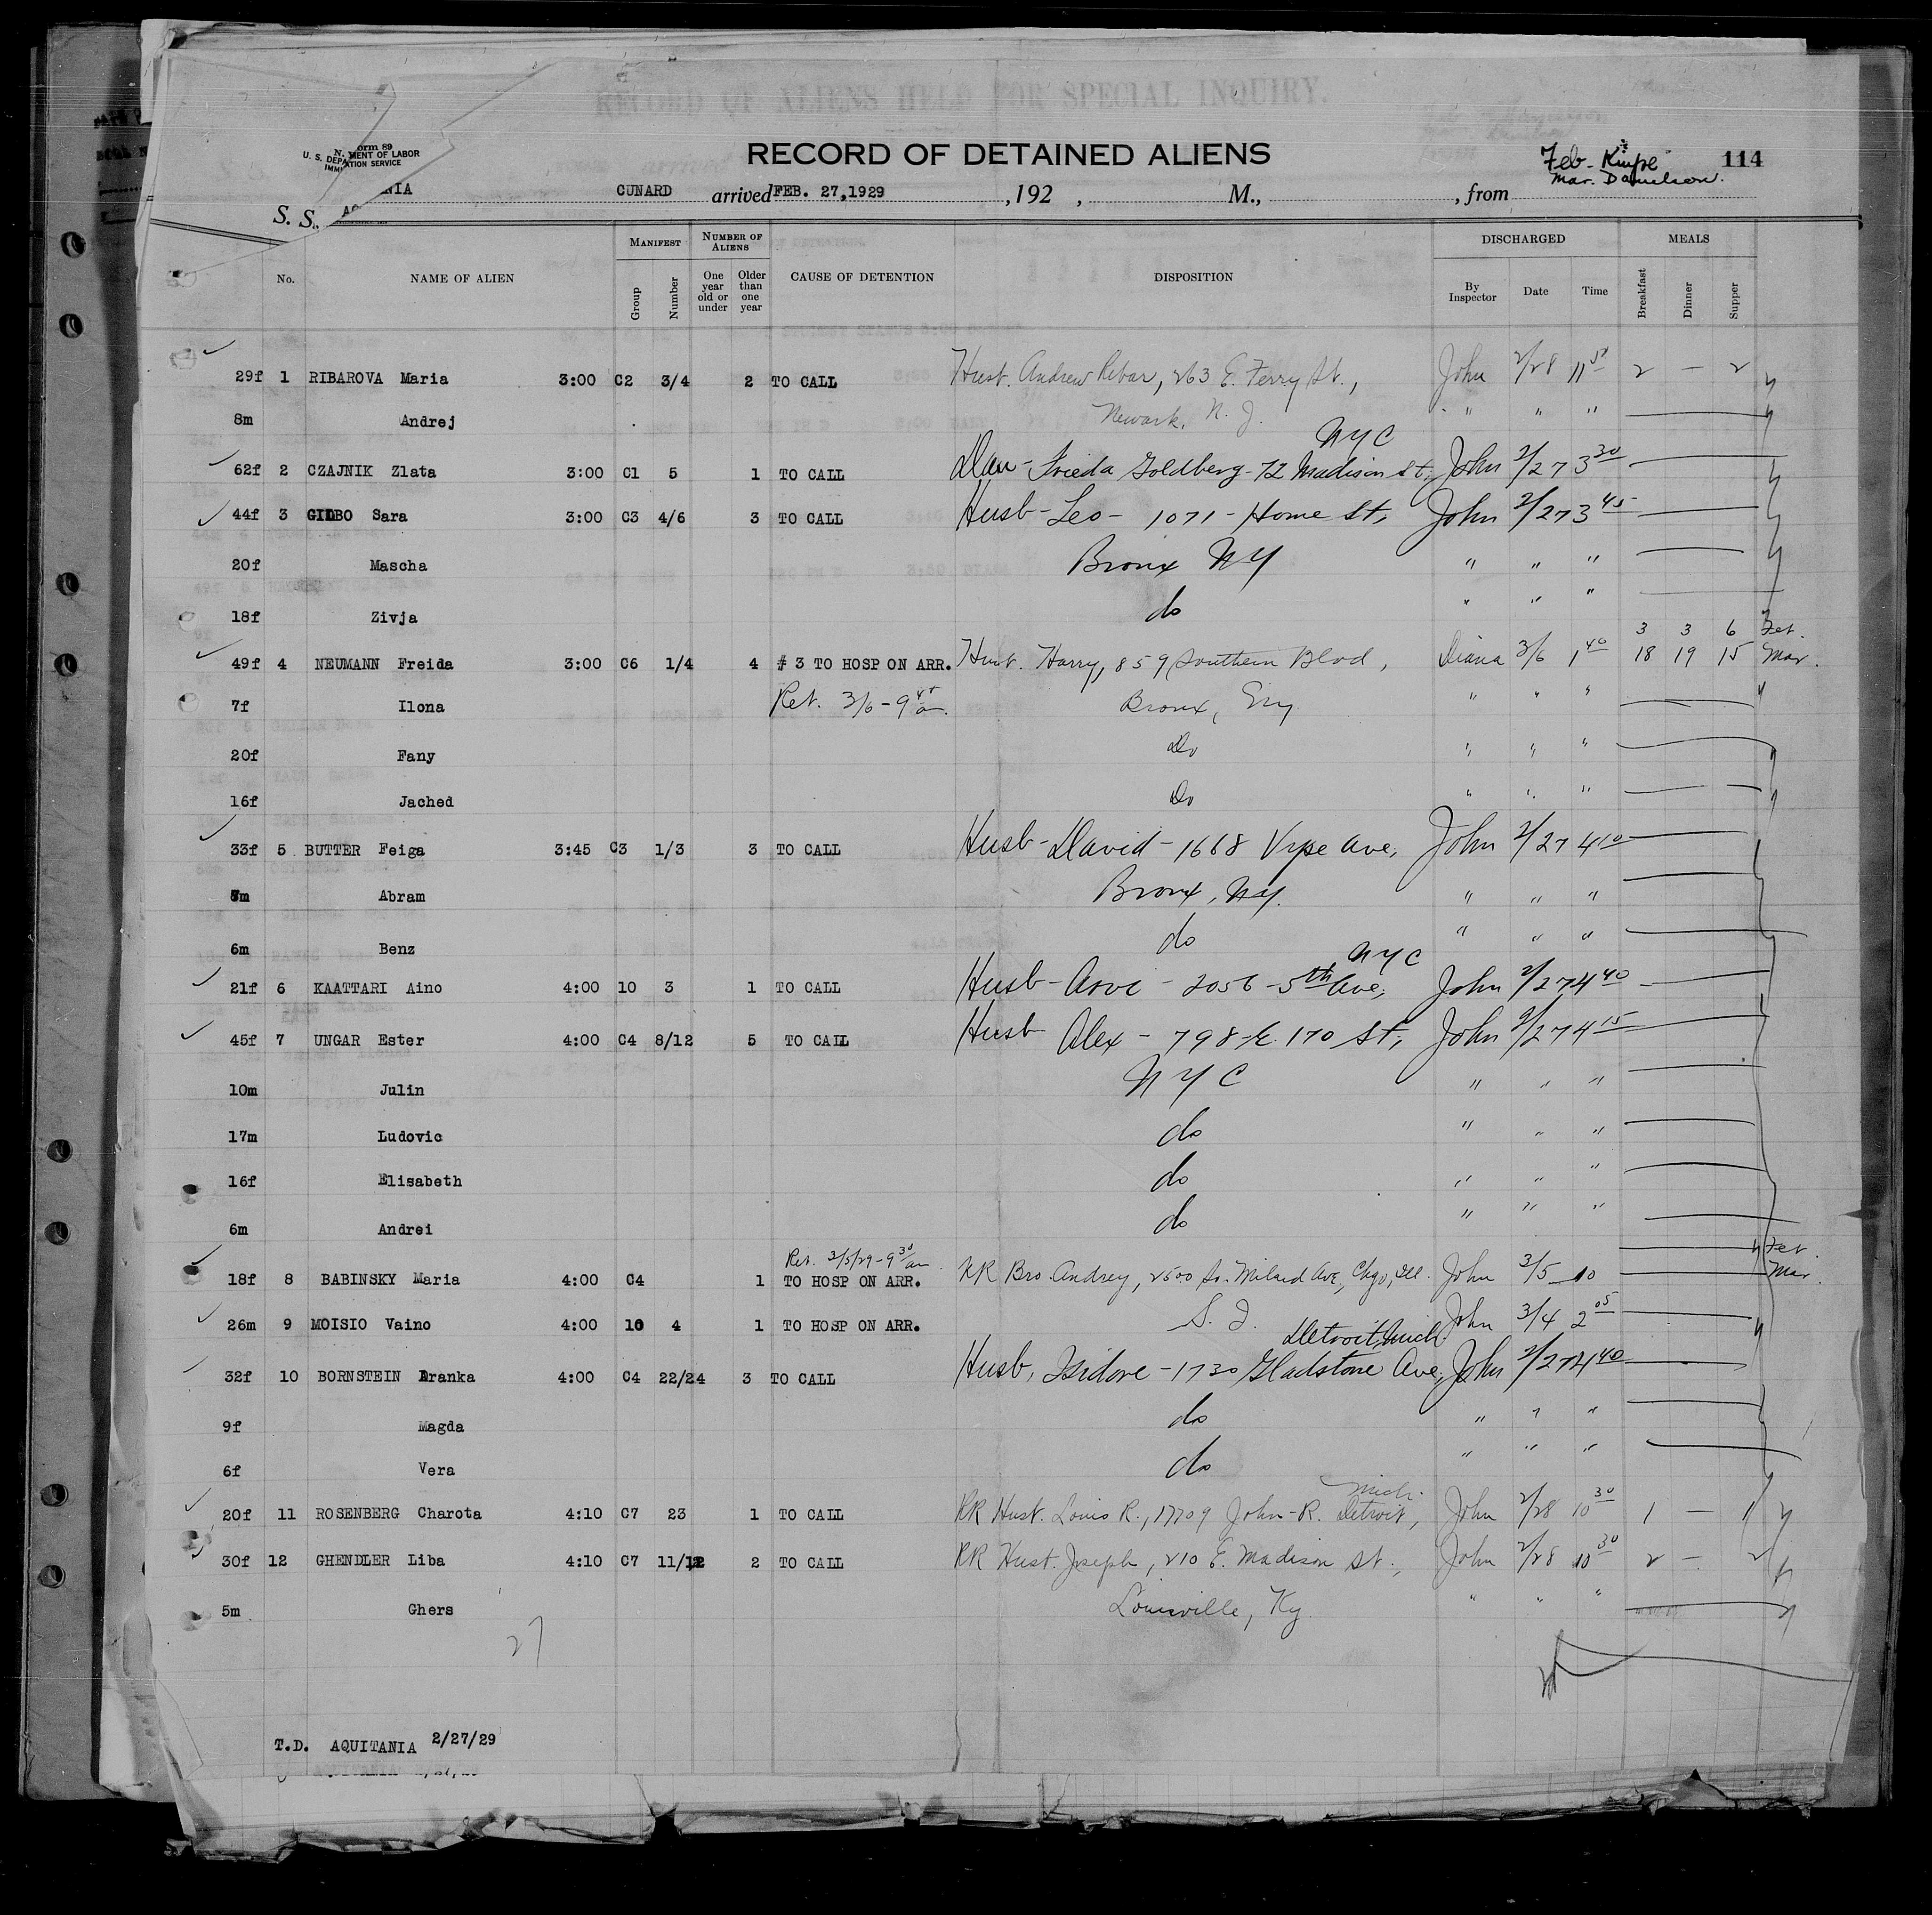 RECORD OF ALIENS HELD FOR SPECIAL INQUIRY.
RECORD OF DETAINED ALIENS
Feb- 114
Mar. Danielson.
orm 89
U. S. DEPA MENT OF LABOR
IMMI ATION SERVICE
S. S. NIA CUNARD arrived FEB. 27,1929 , 192 , M., , from
MANIFEST NUMBER OF ALIENS DISCHARGED MEALS
No. NAME OF ALIEN Group Number One year old or under Older than one year CAUSE OF DETENTION DISPOSITION By Inspector Date Time Breakfast Dinner Supper
29f 1 RIBAROVA Maria 3:00 C2 3/4 2 TO CALL Husb. Andrew Ribar, 263 E. Ferry St., John 2/28 11 50 2 — 2
8m Andrej Newark, N. J. " " "
NYC
62f 2 CZAJNIK Zlata 3:00 C1 5 1 TO CALL Dau- Frieda Goldberg- 72 Madison St. John 2/27 3 30
44f 3 GILBO Sara 3:00 C3 4/6 3 TO CALL Husb- Leo- 1071- Home St, John 2/27 3 45
20f Mascha Bronx NY " " "
18f Zivja do " " "
3 3 6 Feb.
49f 4 NEUMANN Freida 3:00 C6 1/4 4 # 3 TO HOSP ON ARR. Husb. Harry, 859 Southern Blvd, Diana 3/6 1 40 18 19 15 Mar.
7f Ilona Ret. 3/6 - 9 45 a. Bronx, " " "
20f Fany Do " " "
16f Jached Do " " "
33f 5 BUTTER Feiga 3:45 C3 1/3 3 TO CALL Husb- David- 1668 Vyse Ave, John 2/27 4 10
m Abram Bronx, NY. " " "
6m Benz do " " "
NYC
21f 6 KAATTARI Aino 4:00 10 3 1 TO CALL Husb- Arvi - 2056 - 5th Ave, John 2/27 4 40
45f 7 UNGAR Ester 4:00 C4 8/12 5 TO CALL Husb Alex - 798-E. 170 St, John 2/27 4 15
10m Julin NYC " " "
17m Ludovic do " " "
16f Elisabeth do " " "
6m Andrei do " " "
Ret. 3/5/29 - 9 30 am. Feb.
18f 8 BABINSKY Maria 4:00 C4 1 TO HOSP ON ARR. RR Bro. Andrey, 2500 So. Milard Ave, Chgo, Ill. John 3/5 10 Mar.
26m 9 MOISIO Vaino 4:00 10 4 1 TO HOSP ON ARR. S. I. John 3/4 2 05
Detroit, Mich.
32f 10 BORNSTEIN Aranka 4:00 C4 22/24 3 TO CALL Husb, Isidore - 1730 Gladstone Ave, John 2/27 4 40
9f Magda do " " "
6f Vera do " " "
Mich.
20f 11 ROSENBERG Charota 4:10 C7 23 1 TO CALL RR Husb. Louis R., 17709 John-R. Detroit, John 2/28 10 30 1 — 1
30f 12 GHENDLER Liba 4:10 C7 11/12 2 TO CALL RR Husb. Joseph, 210 E. Madison St., John 2/28 10 30 2 — 2
5m Ghers Louisville, Ky. " " "
27
T.D. AQUITANIA 2/27/29